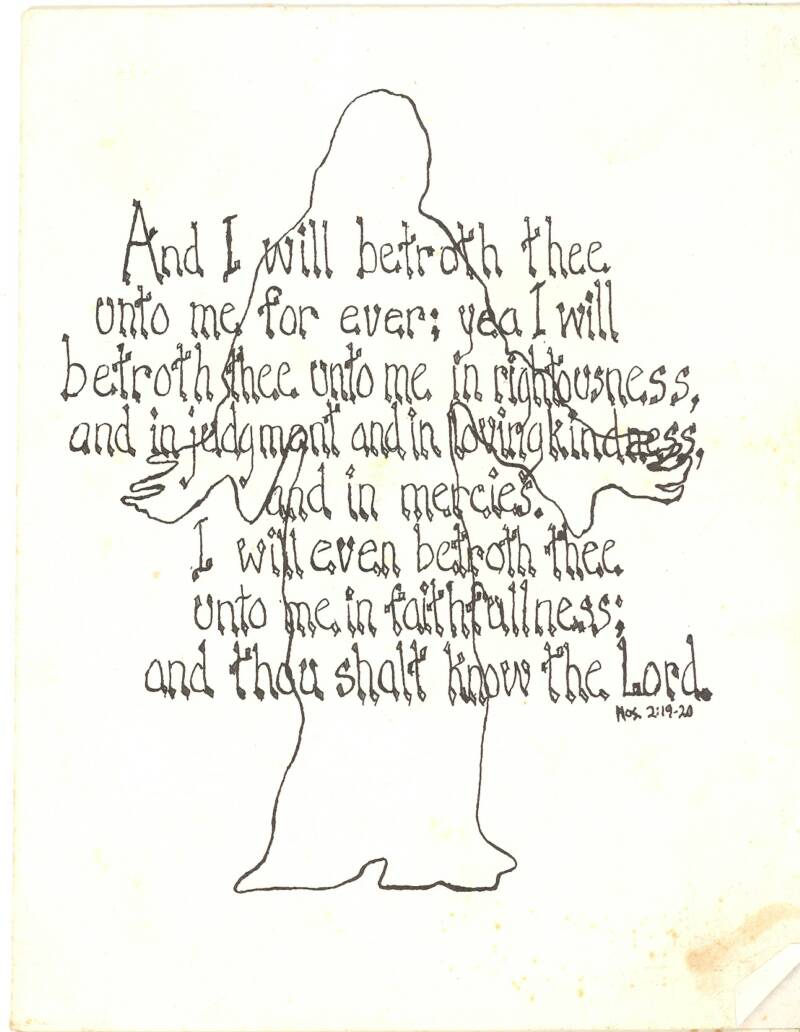 And I will betroth thee
unto me for ever; yea I will
betroth thee unto me in rightousness,
and in judgment and in lovingkindness,
and in mercies.
I will even betroth thee
unto me in faithfullness;
and thou shalt know the Lord.
Hos. 2:19-20